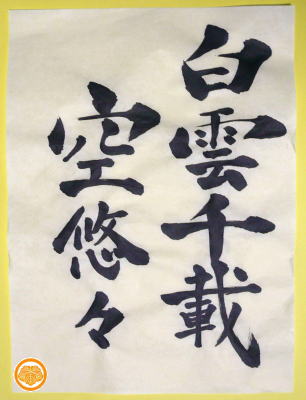 白雲千載
空悠々